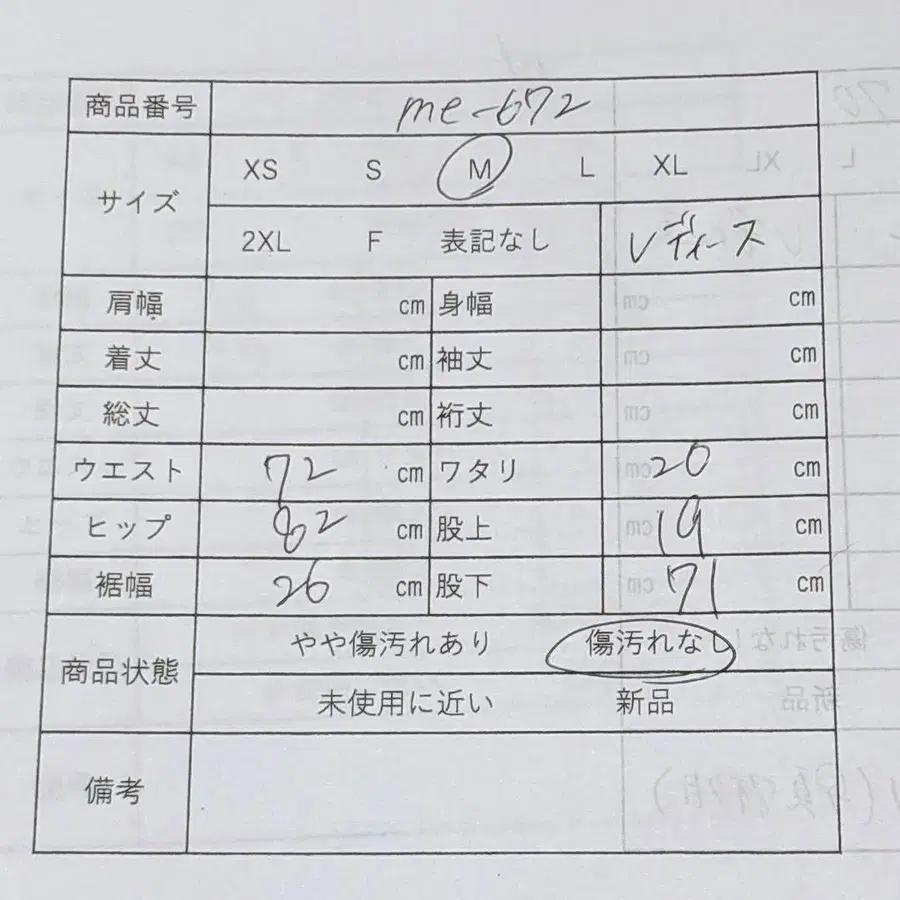 商品番号 me-672
サイズ XS S M L XL
2XL F 表記なし レディース
肩幅 cm 身幅 cm
着丈 cm 袖丈 cm
総丈 cm 裄丈 cm
ウエスト 72 cm ワタリ 20 cm
ヒップ 82 cm 股上 19 cm
裾幅 26 cm 股下 71 cm
商品状態 やや傷汚れあり 傷汚れなし
未使用に近い 新品
備考